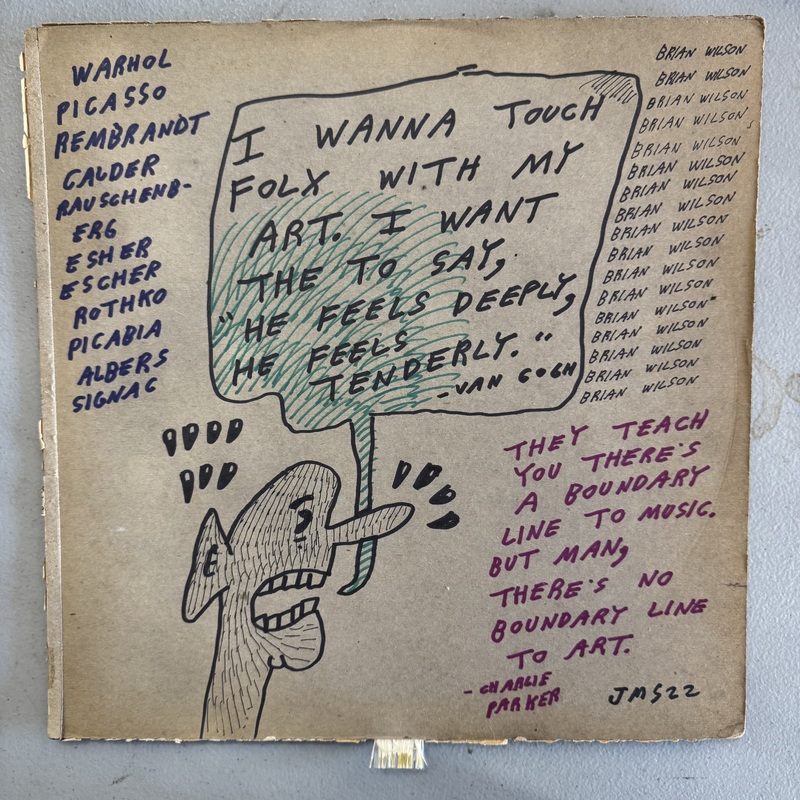 WARHOL
PICASSO
REMBRANDT
CALDER
RAUSCHENB-
ERG
ESHER
ESCHER
ROTHKO
PICABIA
ALBERS
SIGNAC
I WANNA TOUCH
FOLX WITH MY
ART. I WANT
THE TO SAY,
"HE FEELS DEEPLY,
HE FEELS
TENDERLY."
-VAN GOGH
BRIAN WILSON
BRIAN WILSON
BRIAN WILSON
BRIAN WILSON
BRIAN WILSON
BRIAN WILSON
BRIAN WILSON
BRIAN WILSON
BRIAN WILSON
BRIAN WILSON
BRIAN WILSON
BRIAN WILSON
BRIAN WILSON
BRIAN WILSON
BRIAN WILSON
BRIAN WILSON
BRIAN WILSON
THEY TEACH
YOU THERE'S
A BOUNDARY
LINE TO MUSIC.
BUT MAN,
THERE'S NO
BOUNDARY LINE
TO ART.
-CHARLIE
PARKER
JMS22